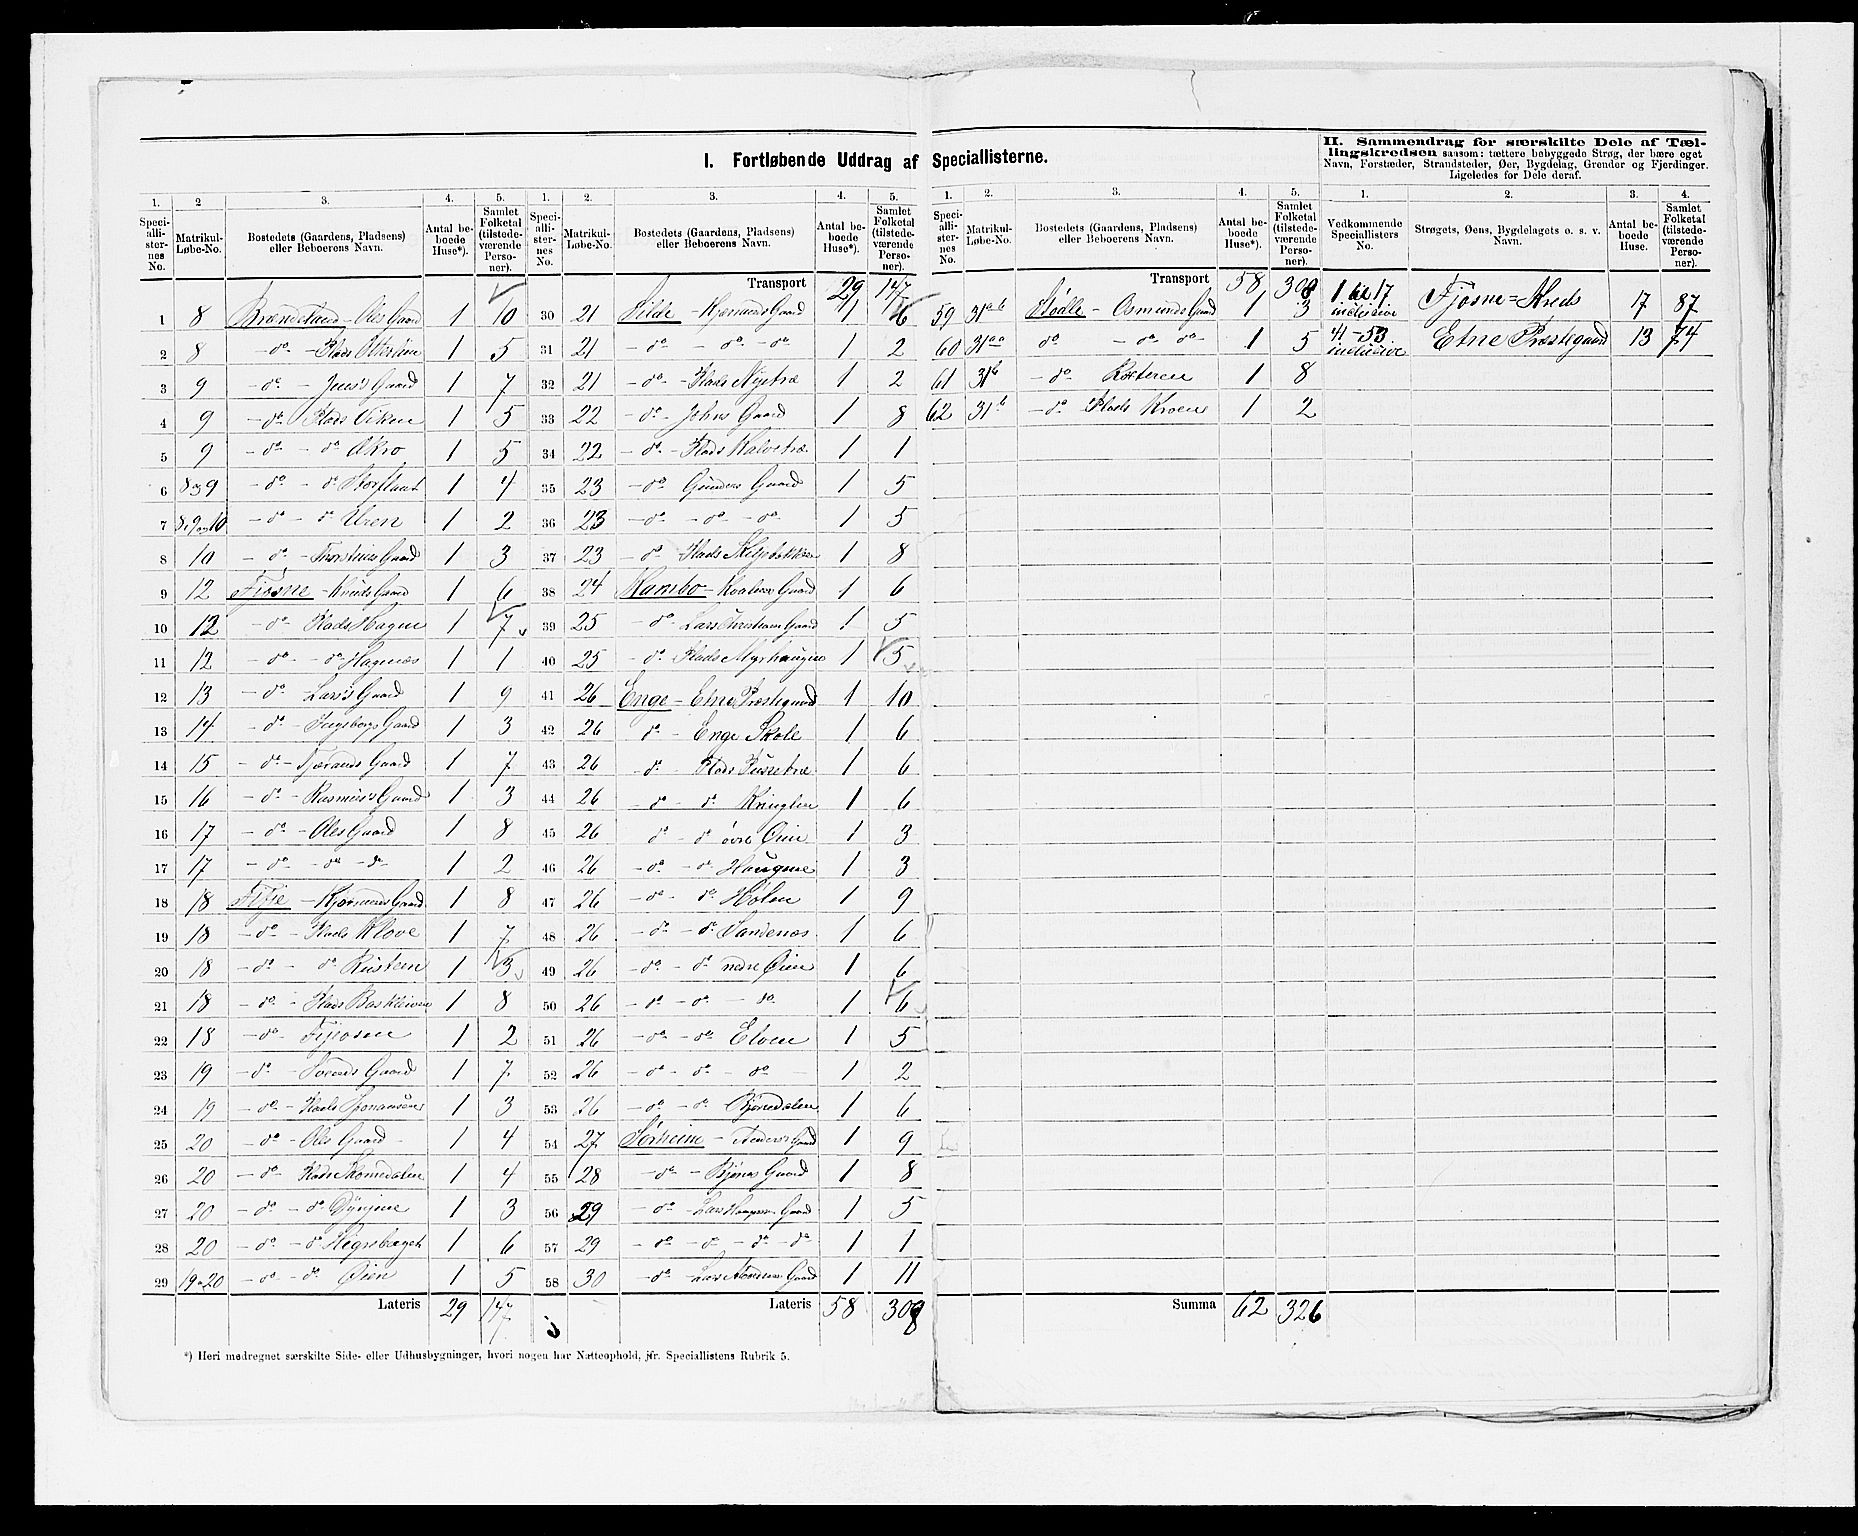 I. Fortløbende Uddrag af Speciallisterne.
II. Sammendrag for særskilte Dele af Tæl-
lingskredsen saasom: tættere bebyggede Strøg, der bære eget
Navn, Forstæder, Strandsteder, Øer, Bygdelag, Grender og Fjerdinger.
Ligeledes for Dele deraf.
1. 2 3. 4. 5.
Speciallister-nes No. Matrikul-Løbe-No. Bostedets (Gaardens, Pladsens) eller Beboerens Navn. Antal beboede Huse*). Samlet Folketal (tilstede-værende Personer).
1 8 Brændeland - Oles Gaard 1 10
2 8 - do - Plads 1 5
3 9 - do - Jens's Gaard 1 7
4 9 - do - Plads Viken 1 5
5 9 - do - do Akro 1 5
6 8 og 9 - do - do 1 4
7 8, 9 og 10 - do - do Uren 1 2
8 10 - do - Thorsteins Gaard 1 3
9 12 Fjøsne - Knuds Gaard 1 6
10 12 - do - Plads Hagen 1 7
11 12 - do - do Hagenæs 1 1
12 13 - do - Lars's Gaard 1 9
13 14 - do - Ingeborgs Gaard 1 3
14 15 - do - Tjærands Gaard 1 7
15 16 - do - Rasmus's Gaard 1 3
16 17 - do - Oles Gaard 1 8
17 17 - do - do - do 1 2
18 18 Fitje - Gaard 1 8
19 18 - do - Plads Klove 1 7
20 18 - do - do Rusten 1 3
21 18 - do - Plads 1 8
22 18 - do - Fitjeosen 1 2
23 19 - do - Gaard 1 7
24 19 - do - Plads 1 3
25 20 - do - Oles Gaard - 1 4
26 20 - do - Plads 1 4
27 20 - do - do 1 3
28 20 - do - do 1 6
29 19 o 20 - do - do Øien 1 5
Lateris 29 147
1. 2. 3. 4. 5.
Speciallister-nes No. Matrikul-Løbe-No. Bostedets (Gaardens, Pladsens) eller Beboerens Navn. Antal beboede Huse*). Samlet Folketal (tilstede-værende Personer).
Transport 29 147
30 21 Silde - Gaard 1 6
31 21 - do - do - do 1 2
32 21 - do - Plads Nytræ 1 2
33 22 - do - Johns Gaard 1 8
34 22 - do - Plads Kalvetræ 1 1
35 23 - do Gunders Gaard 1 5
36 23 - do - do - do 1 5
37 23 - do - Plads 1 8
38 24 Hambo - Gaard 1 6
39 25 - do - Lars Christians Gaard 1 5
40 25 - do Plads Myrhaugen 1 5
41 26 Enge - Etne Præstegaard 1 10
42 26 do - Enge Skole 1 6
43 26 - do - Plads 1 6
44 26 - do - do Kringlen 1 6
45 26 do - do øvre Øien 1 3
46 26 - do - do Haugene 1 3
47 26 - do - do Holen 1 9
48 26 - do - do Sandenæs 1 6
49 26 - do - do nedre Øien 1 6
50 26 - do - do - do 1 6
51 26 - do - do Elven 1 5
52 26 - do - do - do 1 2
53 26 - do - do Bjørnedalen 1 6
54 27 Sørheim - Anders's Gaard 1 9
55 28 - do - Gaard 1 8
56 29 - do - Lars Gaard 1 5
57 29 - do - do - do - do 1 1
58 30 - do - Lars Gaard 1 11
Lateris 58 308
1. 2. 3. 4. 5.
Speciallister-nes No. Matrikul-Løbe-No. Bostedets (Gaardens, Pladsens) eller Beboerens Navn. Antal beboede Huse*). Samlet Folketal (tilstede-værende Personer).
Transport 58 308
59 31ab Stødle - Osmunds Gaard 1 3
60 31aa do - do do 1 5
61 31b - do 1 8
62 31b - do Plads Kroen 1 2
Summa 62 326
1. 2. 3. 4.
Vedkommende Speciallisters No. Strøgets, Øens, Bygdelagets o. s. v. Navn. Antal beboede Huse. Samlet Folketal (tilstede-værende Personer).
1 til 17 inclusive Fjøsne=Kreds 17 87
41-53 inclusive Etne Præstegaard 13 74
*) Heri medregnet særskilte Side- eller Udhusbygninger, hvori nogen har Natteophold, jfr. Speciallistens Rubrik 5.